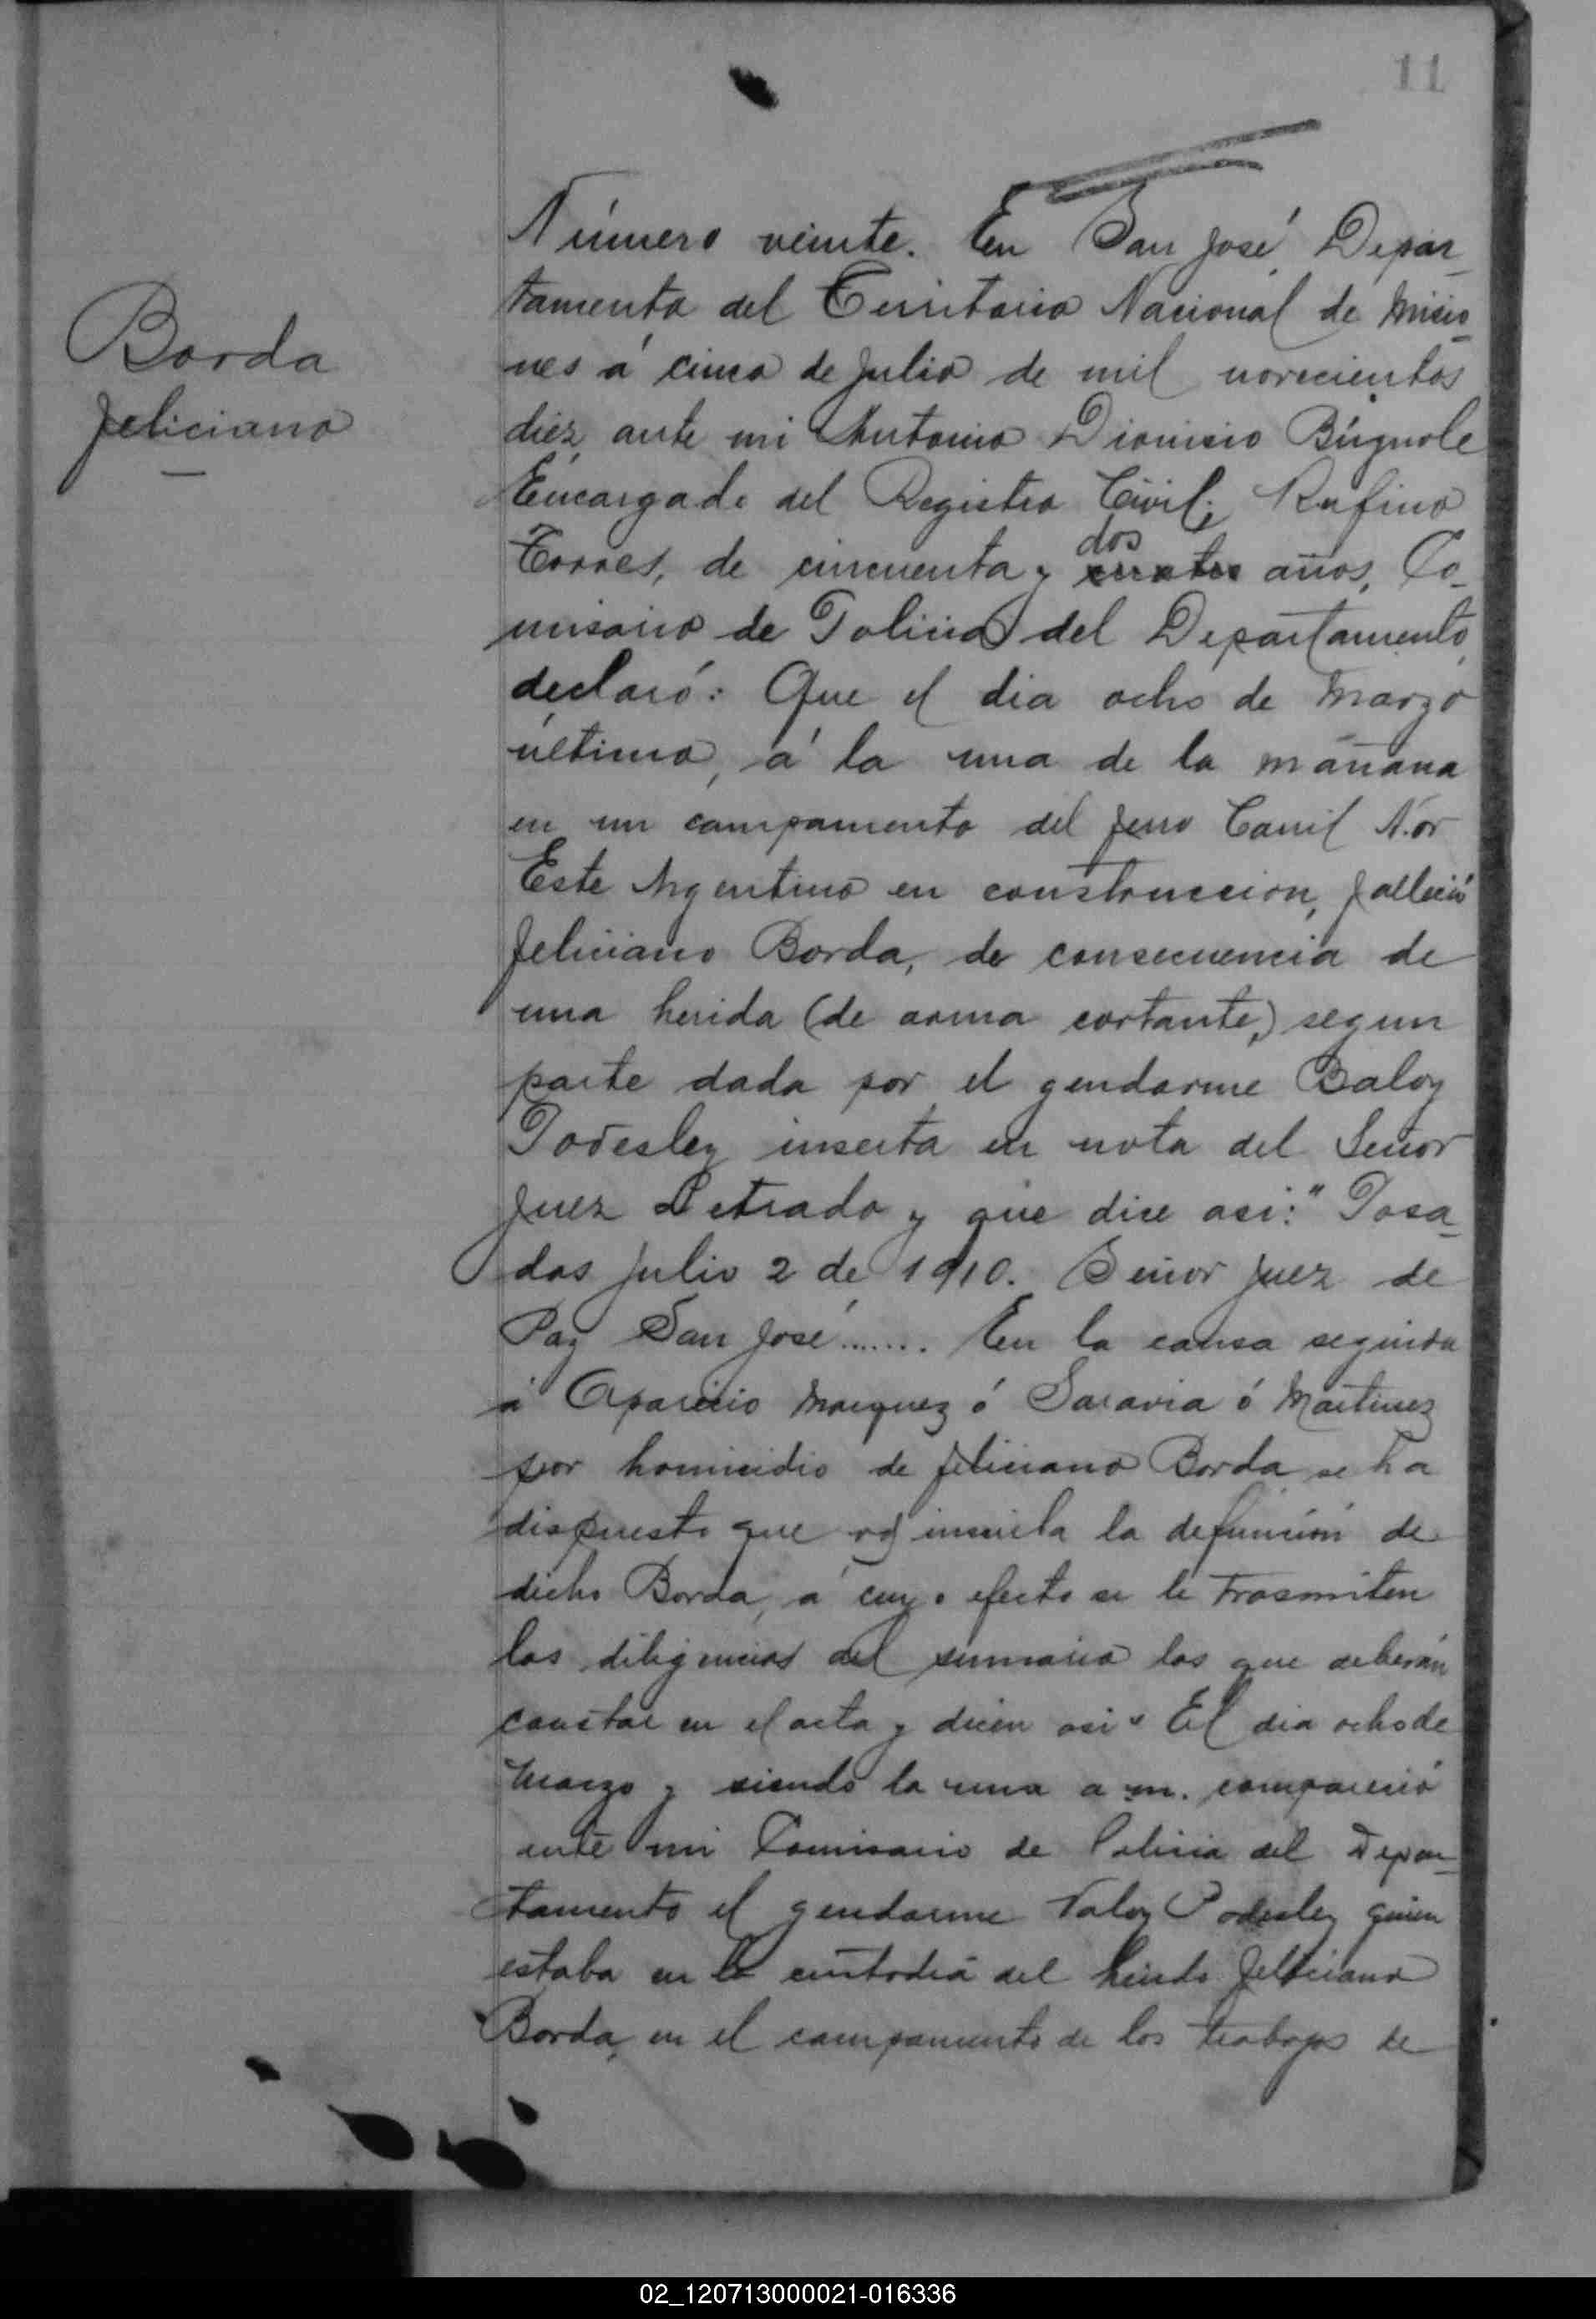 11
Borda
Feliciano
Número veinte. En San José Depar_
tamento del Territorio Nacional de Misio_
nes á cinco de Julio de mil novecientos
diez, ante mi Antonio Dionisio
Encargado del Registro Civil; Rufino
Torres, de cincuenta y dos cuatro años, Co_
misario de Policia del Departamento,
declaró: Que el dia ocho de Marzo
último, á la una de la mañana
en un campamento del Ferro Carril Nor
Este Argentino en construccion, falleció
Feliciano Borda, de consecuencia de
una herida (de arma cortante,) segun
parte dada por el gendarme Baloy
Podesley inserta en nota del Señor
Juez Letrado y que dice asi:" Posa_
das Julio 2 de 1910. Señor Juez de
Paz San José....... En la causa seguida
á Aparicio Marquez ó Saravia ó Martinez
por homicidio de Feliciano Borda se ha
dispuesto que inscriba la defunción de
dicho Borda, á cuyo efecto se le trasmiten
las diligencias del sumario las que deberán
constar en el acta y dicen asi" El dia ocho de
Marzo y siendo la una a m. compareció
ante mi Comisario de Policia del Depar_
tamento el gendarme Valoy Podesley quien
estaba en la custodia del herido Feliciano
Borda, en el campamento de los trabajos de
02_120713000021-016336